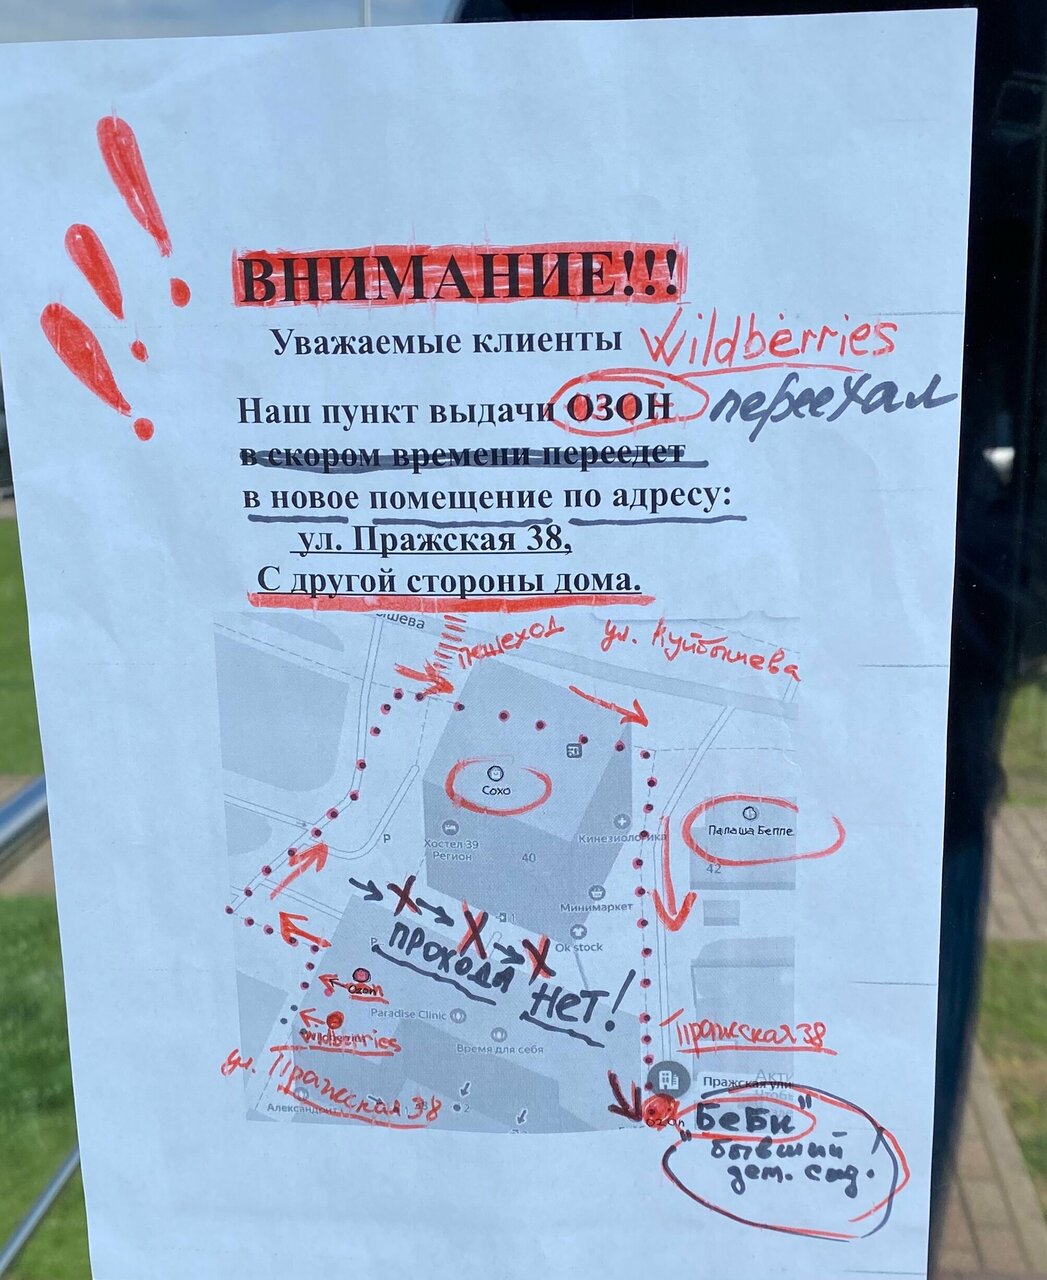 ВНИМАНИЕ!!!
Уважаемые клиенты Wildberries
Наш пункт выдачи ОЗОН переехал
в скором времени переедет
в новое помещение по адресу:
ул. Пражская 38,
С другой стороны дома.
ышева
пешеход
ул. Куйбышева
Сохо
Палаша Беппе
P
Хостел 39
Регион
Кинезиологика
40
42
Минимаркет
1
Ok stock
P
прохода
нет!
Ozon
Paradise Clinic
Wildberries
Время для себя
Пражская 38
ул. Пражская 38
Пражская ули
Александрит
2
Ozon
"БеБи"
бывший
дет. сад.